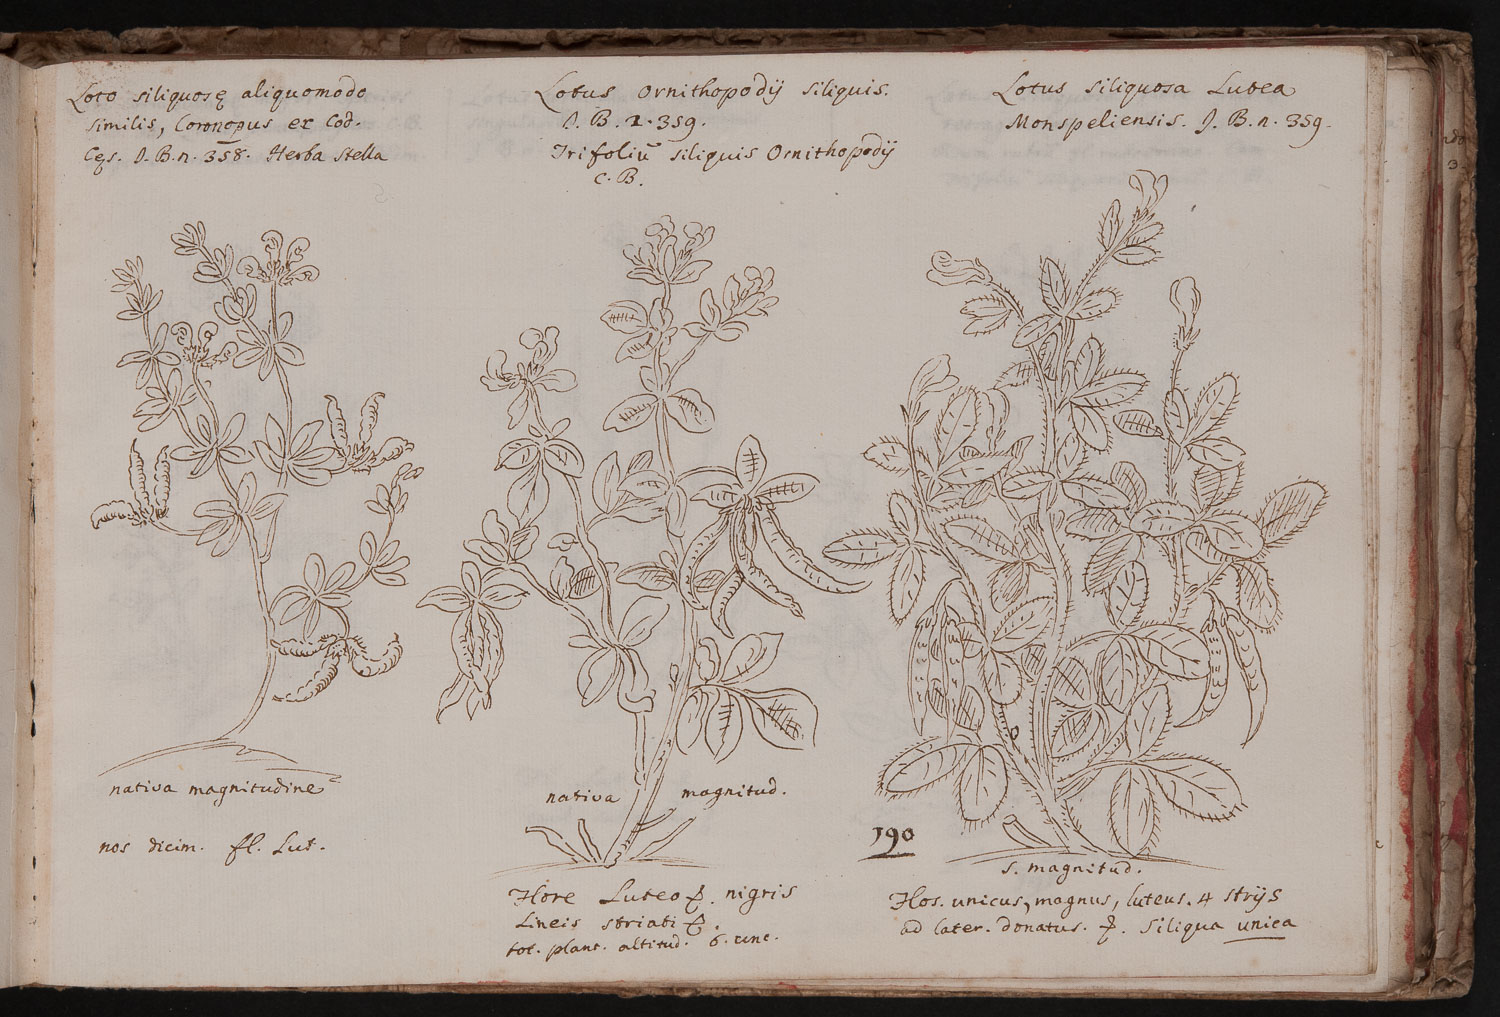 Loto siliquosę aliquomodo
similis, Coronopus ex Cod.
Cęs. I. B. n. 358. Herba Stella
Lotus Ornithopodij siliquis.
I. B. 2. 359.
Trifoliū siliquis Ornithopodij
C. B.
Lotus siliquosa Lutea
Monspeliensis. J. B. n. 359.
nativa magnitudine
nos dicim. fl. Lut.
nativa magnitud.
Flore Luteo nigris
Lineis striati
tot. plant. altitud. 6. unc.
190
s. magnitud.
Flos. unicus, magnus, luteus. 4 strijs
ad later. donatus. Siliqua unica